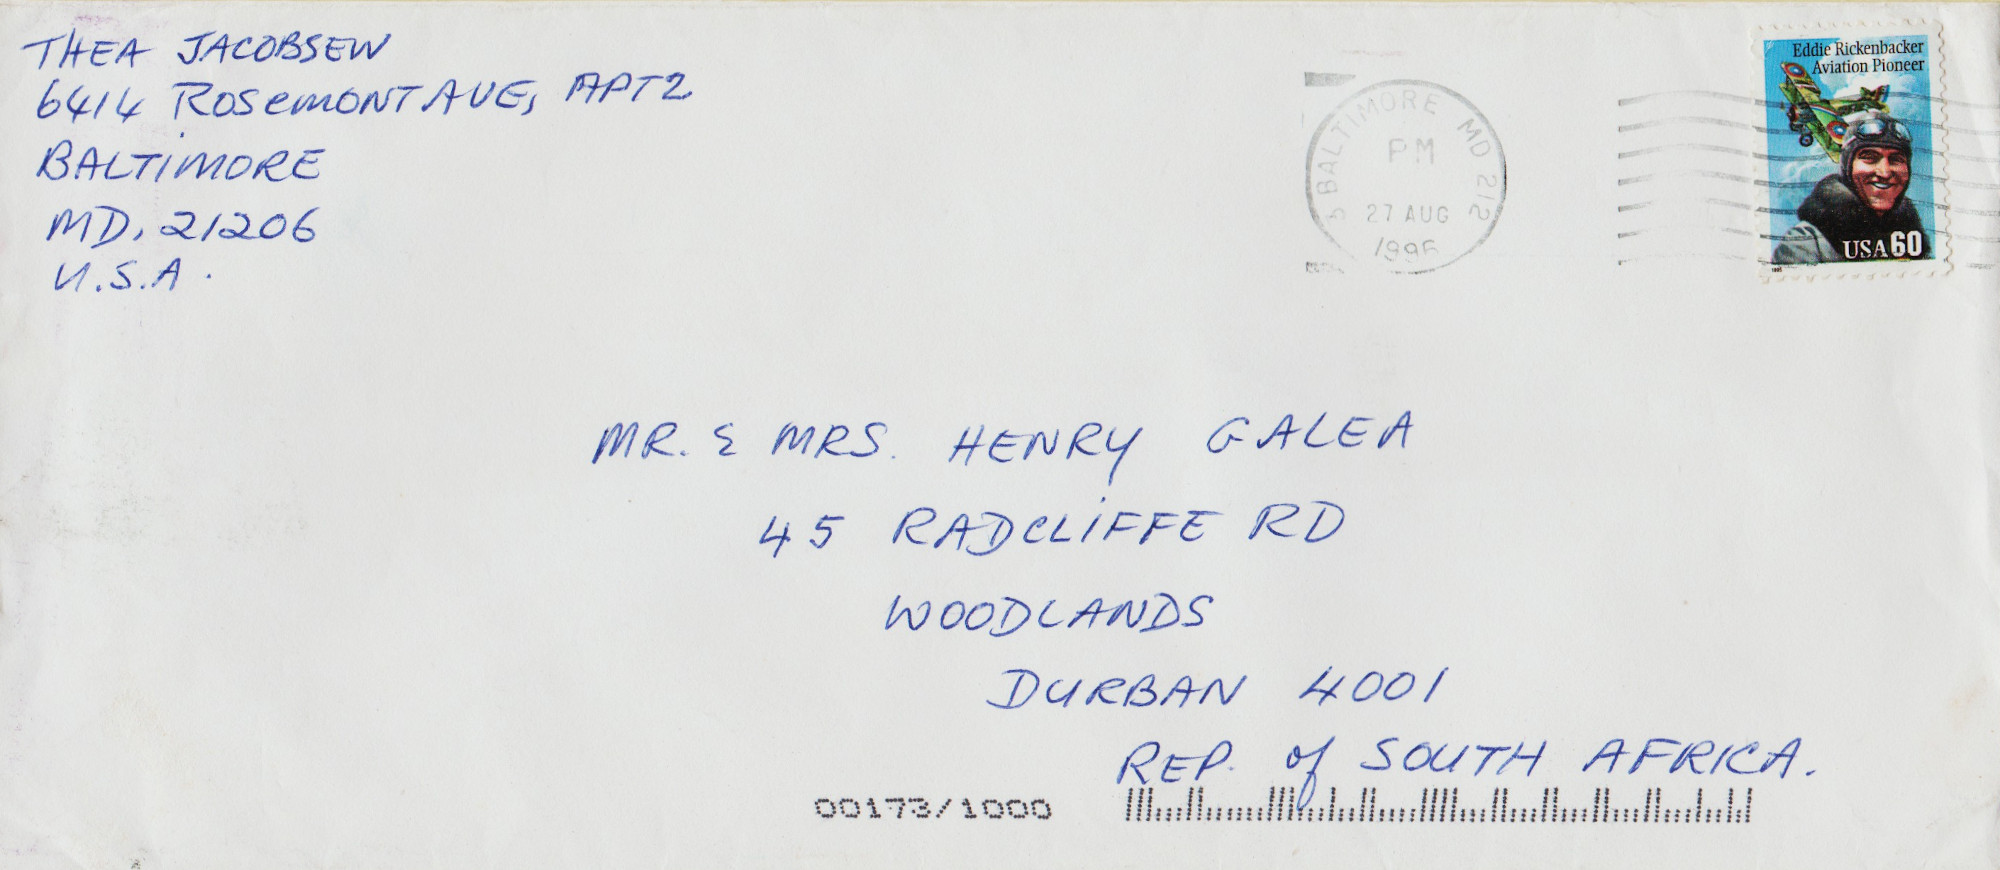 THEA JACOBSEN
6414 ROSEMONT AVE, APT 2
BALTIMORE
MD. 21206
U.S.A.
BALTIMORE MD 212
PM
27 AUG
1996
Eddie Rickenbacker
Aviation Pioneer
USA 60
1995
MR. & MRS. HENRY GALEA
45 RADCLIFFE RD
WOODLANDS
DURBAN 4001
REP. of SOUTH AFRICA.
00173/1000